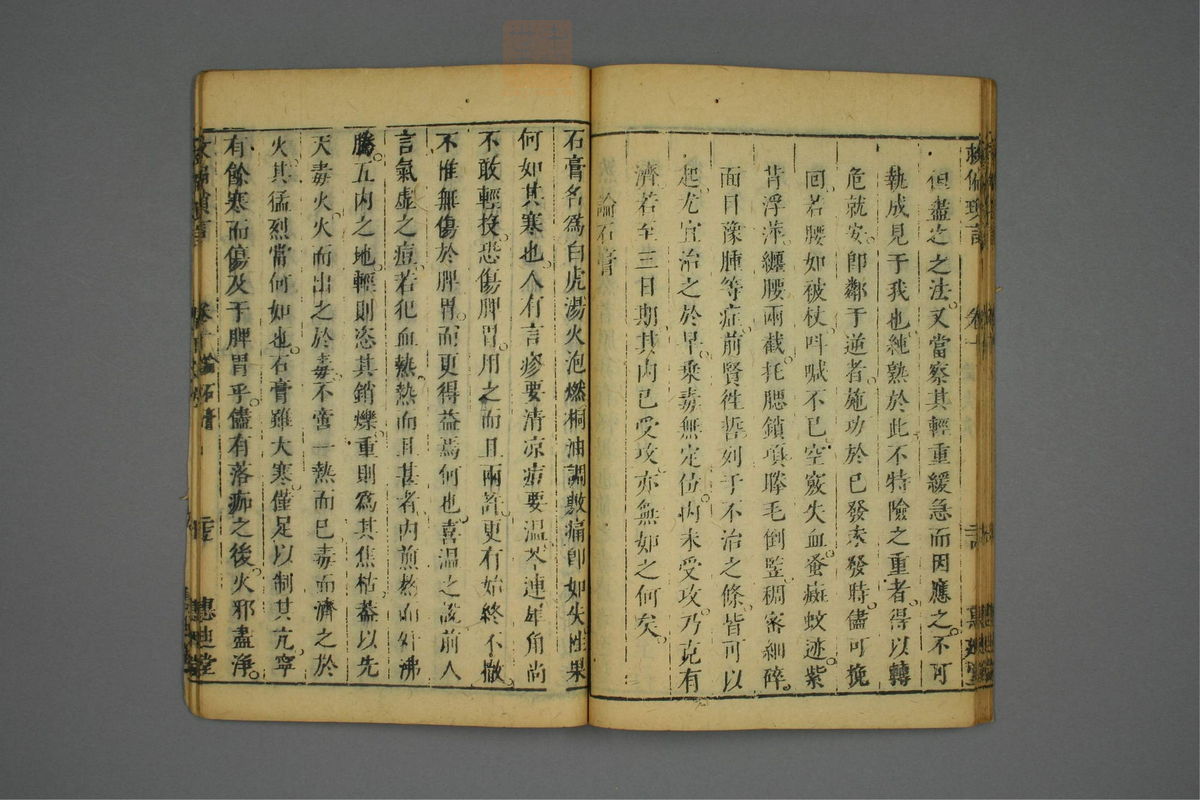 救偏瑣言　卷一　惠迪堂
但盡之之法又當察其輕重緩急而因應之不可
執成見于我也純熟於此不特險之重者得以轉
危就安即鄰于逆者施功於已發未發時儘可挽
回若腰如被杖呌喊不已空竅失血蚤癍蚊迹紫
背浮萍纏腰兩截托腮鎖項滕毛倒竪稠密細碎
面目豫腫等症前賢徃哲列于不治之條皆可以
起尤宜治之於早乗毒無定位内未受攻乃克有
濟若至三日期其内已受攻亦無如之何矣
論石膏
石膏名爲白虎湯火泡燃桐油調敷痛即如失性果
何如其寒也人有言疹要清凉痘要温芩連犀角尚
不敢輕投恐傷脾胃用之而且兩許更有始終不撤
不惟無傷於脾胃而更得益焉何也喜温之説前人
言氣虚之痘若犯血熱熱而且甚者内煎熬而如沸
騰五内之地輕則恣其銷爍重則爲其焦枯葢以先
天毒火火而出之於毒不啻一熱而已毒而濟之於
火其猛烈當何如也石膏雖大寒僅足以制其亢寧
有餘寒而傷及于脾胃乎儘有落痂之後火邪盡淨
卷一　論石膏　惠迪堂